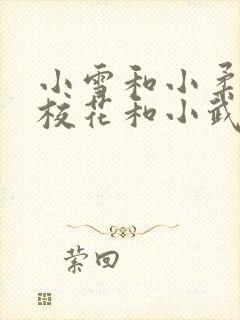 小雪和小柔
校花和小武
萦回